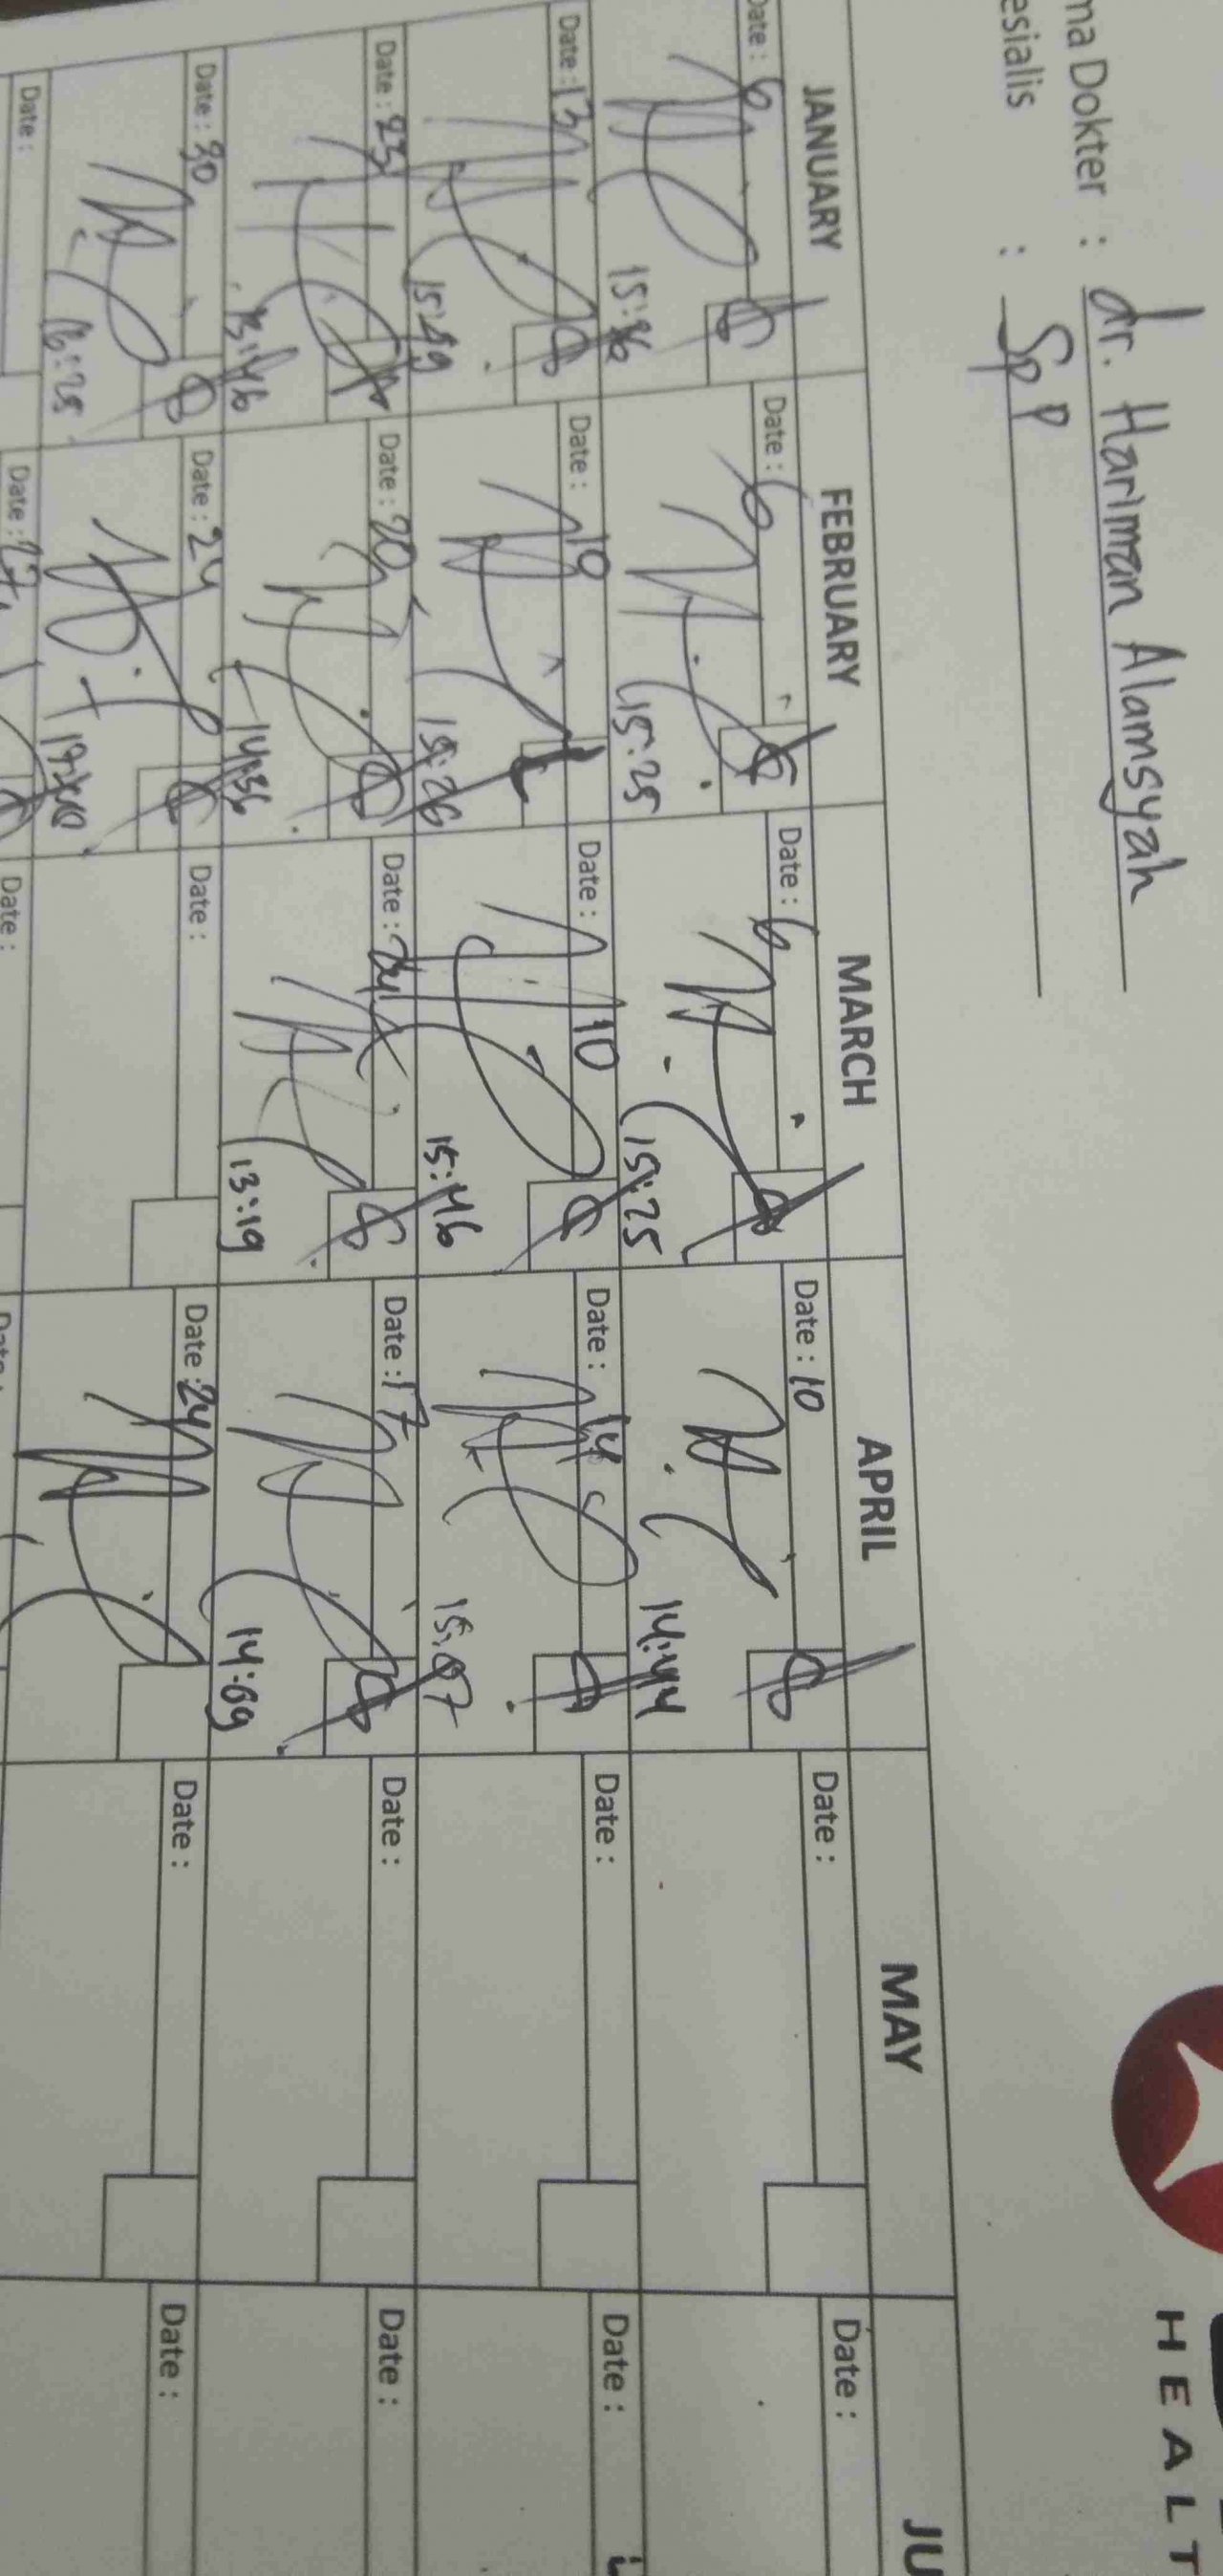 ma Dokter : dr. Hariman Alamsyah
esialis : Sp P
HEALT
JANUARY FEBRUARY MARCH APRIL MAY JU
Date : 6 Date : 6 Date : 6 Date : 10 Date : Date :
15:25 15:25 14:44
Date : 13 Date : 10 Date : 10 Date : 14 Date : Date :
15:49 15:26 15:46 15:07
Date : 23 Date : 20 Date : 24 Date : 17 Date : Date :
13:46 14:36 13:19 14:09
Date : 30 Date : 24 Date : Date : 24 Date : Date :
Date : Date : 27 Date :